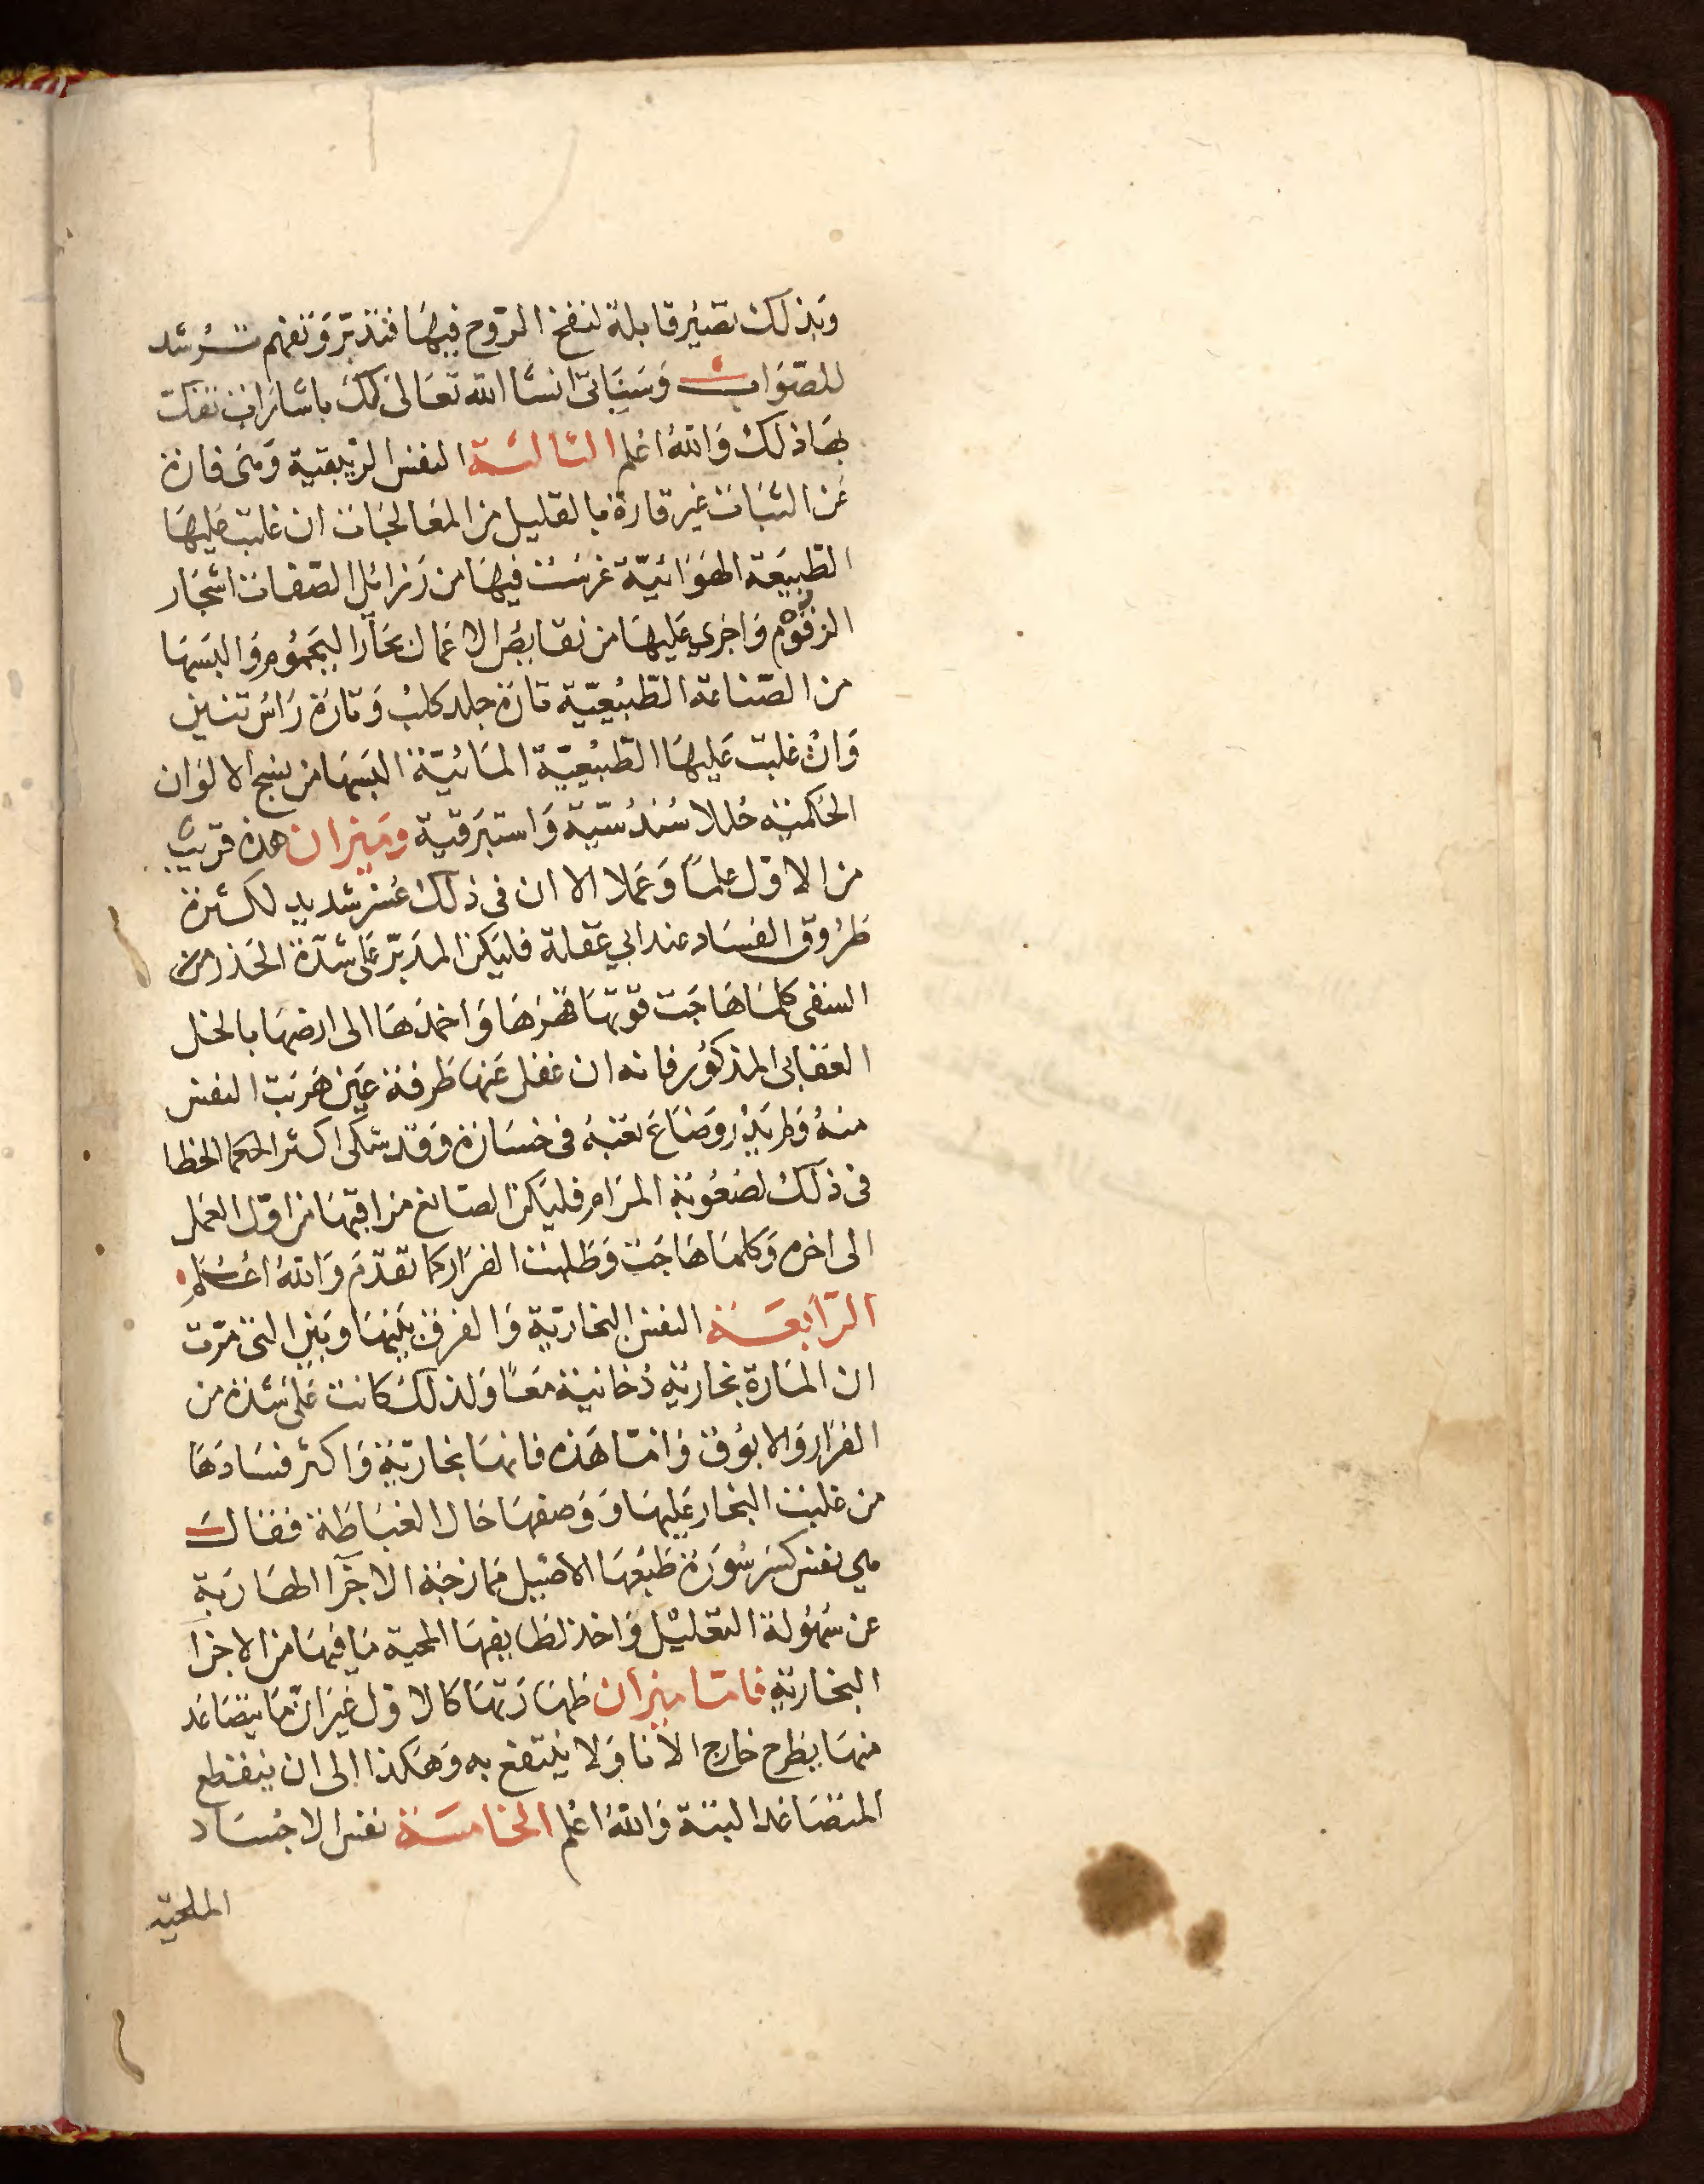 وبذلك تصير قابلة لنفخ الروح فيها فتدبر وتفهم ترشد
للصواب وسياتى انشا الله تعالى لك باشارات تفك
بها ذلك والله اعلم الثالثة النفس الزيبقية وهى فارة
عن الثبات غير قارة بالقليل من المعالجات ان غلبت عليها
الطبيعة الهوائية غرست فيها من رزائل الصفات اشجار
الزقوم واجري عليها من نقايص الاعمال بحار اليحموم والبسها
من الصناعة الطبيعية تارة جلد كلب وتارة راس تنين
وان غلبت عليها الطبيعية المائية البسها من نسج الالوان
الحكمية حللا سندسية واستبرقية وميزان هذه قريب
من الاول علما وعملا الا ان فى ذلك عسر شديد لكثرة
طروق الفساد عند ابي عقلة فليكن المدبر على شدة الحذر من
السفى كلما هاجت قوتها قهرها واخمدها الى ارضها بالخل
العقابى المذكور فانه ان غفل عنها طرفة عين هربت النفس
منه ولم يدر وضاع تعبه فى خسارة وقد شكى اكثر الحكما الخطا
فى ذلك لصعوبة المرام فليكن الصانع مراقبها من اول العمل
الى اخره وكلما هاجت وطلبت الفرار كما تقدم والله اعلم
الرابعة النفس البخارية والفرق بينها وبين التى مرت
ان المارة بخارية دخانية معا ولذلك كانت على شدة من
الفرار والابوق واما هذه فانها بخارية واكثر فسادها
من غلبت البخار عليها ووصفها خال الغباطة فقال
هي نفس كسر سورة طبعها الاصيل ممازجة الاجزا الهاربة
عن سهولة التعليل واخذ لطايفها المحية ما فيها من الاجزا
البخارية فاما ميزان طهارتها كالاول غير ان ما يتصاعد
منها يطرح خارج الانا ولا ينتفع به وهكذا الى ان ينقطع
المتصاعد البتة والله اعلم الخامسة نفس الاجساد
الملحية